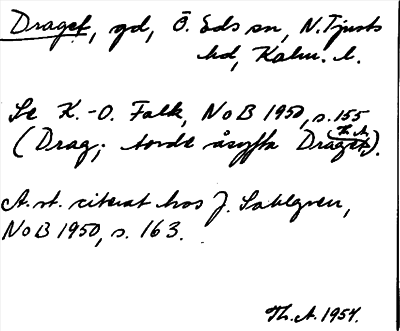 Draget, gd, Ö. Eds sn, N. Tjusts
hd, Kalm. l.
Se K.-O. Falk, NoB 1950, s. 155
(Drag; torde åsyfta Draget).
Th. A.
A. st. citerat hos J. Sahlgren,
NoB 1950, s. 163.
Th. A. 1954.